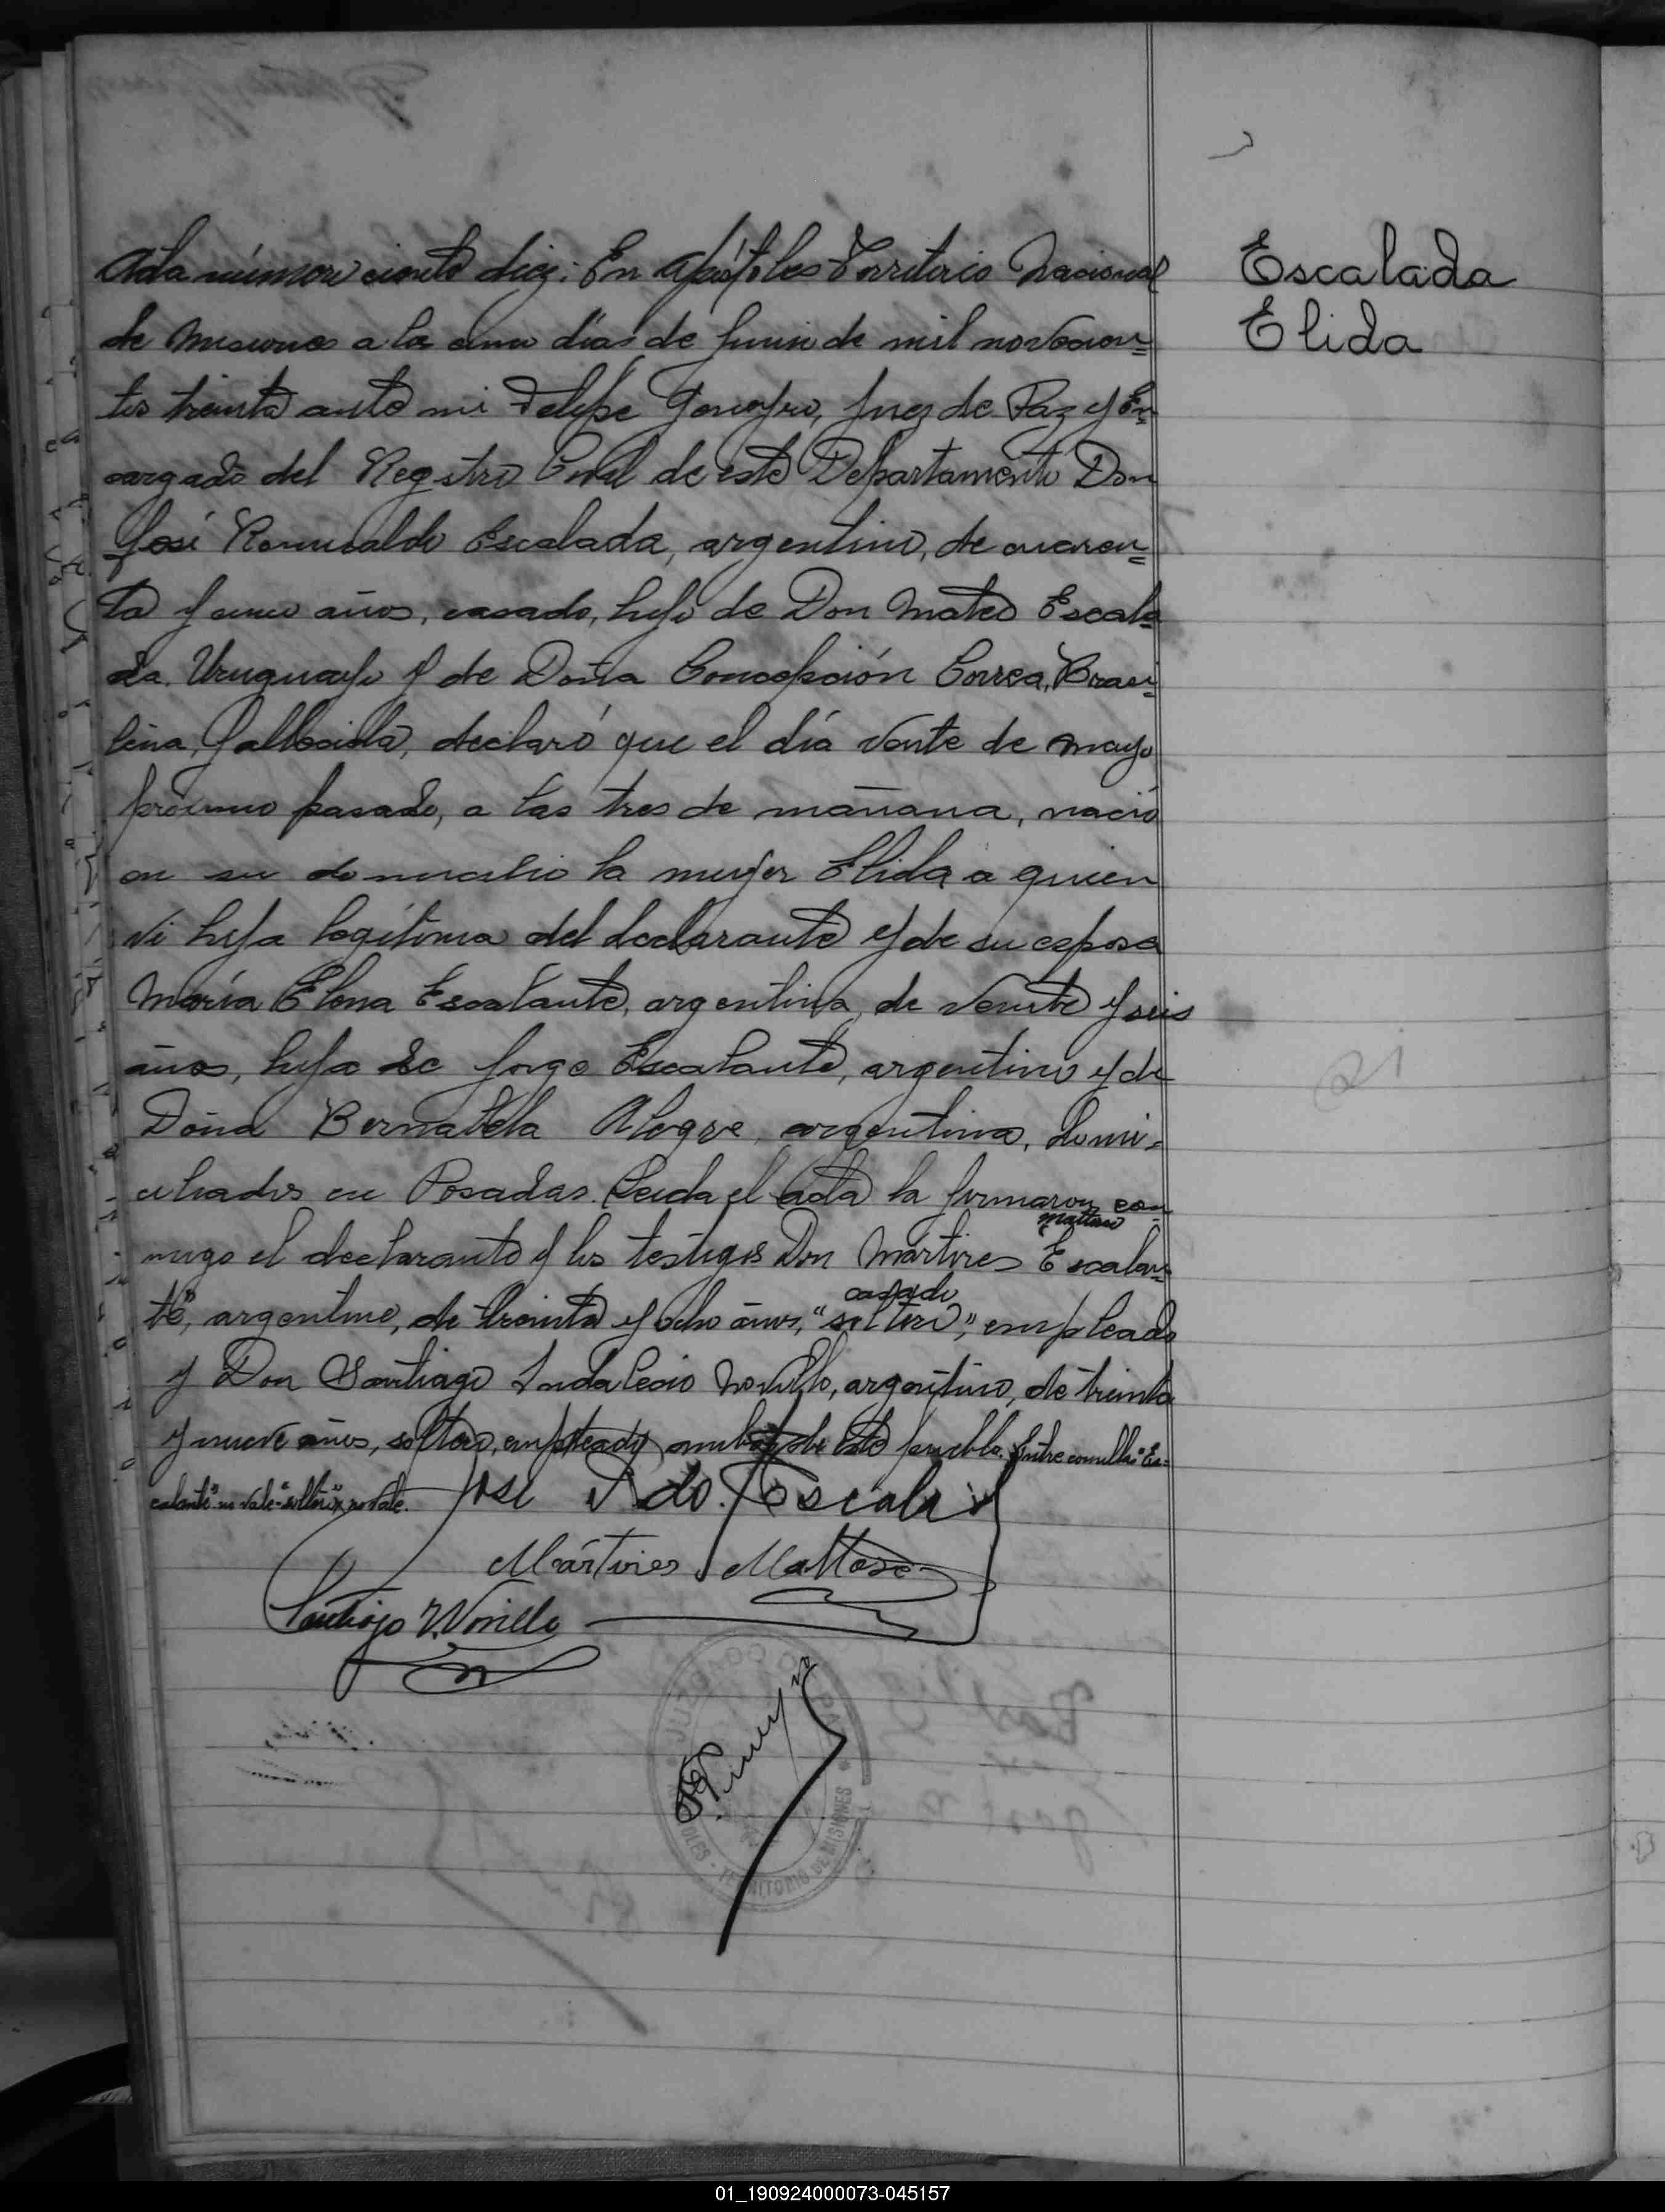 Escalada
Elida
Acta número ciento diez: En Apóstoles Territorio Nacional
de Misiones a los cinco días de junio de mil novecien=
tos treinta ante mi Felipe juez de Paz y En=
cargado del Registro Civil de este Departamento Don
José Romualdo Escalada, argentino, de cuaren=
ta y cinco años, casado, hijo de Don Mateo Escala=
da, Uruguayo y de Doña Concepción Correa, Brasi=
lena, fallecida, declaró que el día veinte de mayo
próximo pasado, a las tres de mañana, nació
en su domicilio la mujer Elida a quien
vi hija legítima del declarante y de su esposa
María Elena Escalante, argentina, de veinte y seis
años, hija de Jorge Escalante, argentino y de
Doña Bernabela Alegre, argentina, domi=
ciliados en Posadas. Leida el acta la firmaron con=
Mattoso
migo el declarante y los testigos Don Mártires "Escalan=
casado
te", argentino, de treinta y ocho años, "soltero", empleado
y Don Santiago Indalecio Novillo, argentino, de treinta
y nueve años, soltero, empleado, ambos de este pueblo. Entre comillas "Es=
calante" no vale "soltero" no vale.
José Escalada
Mártires Mattoso
Santiago I. Novillo
JUZGADO DE PAZ
TERRITORIO DE MISIONES
21
01_190924000073-045157